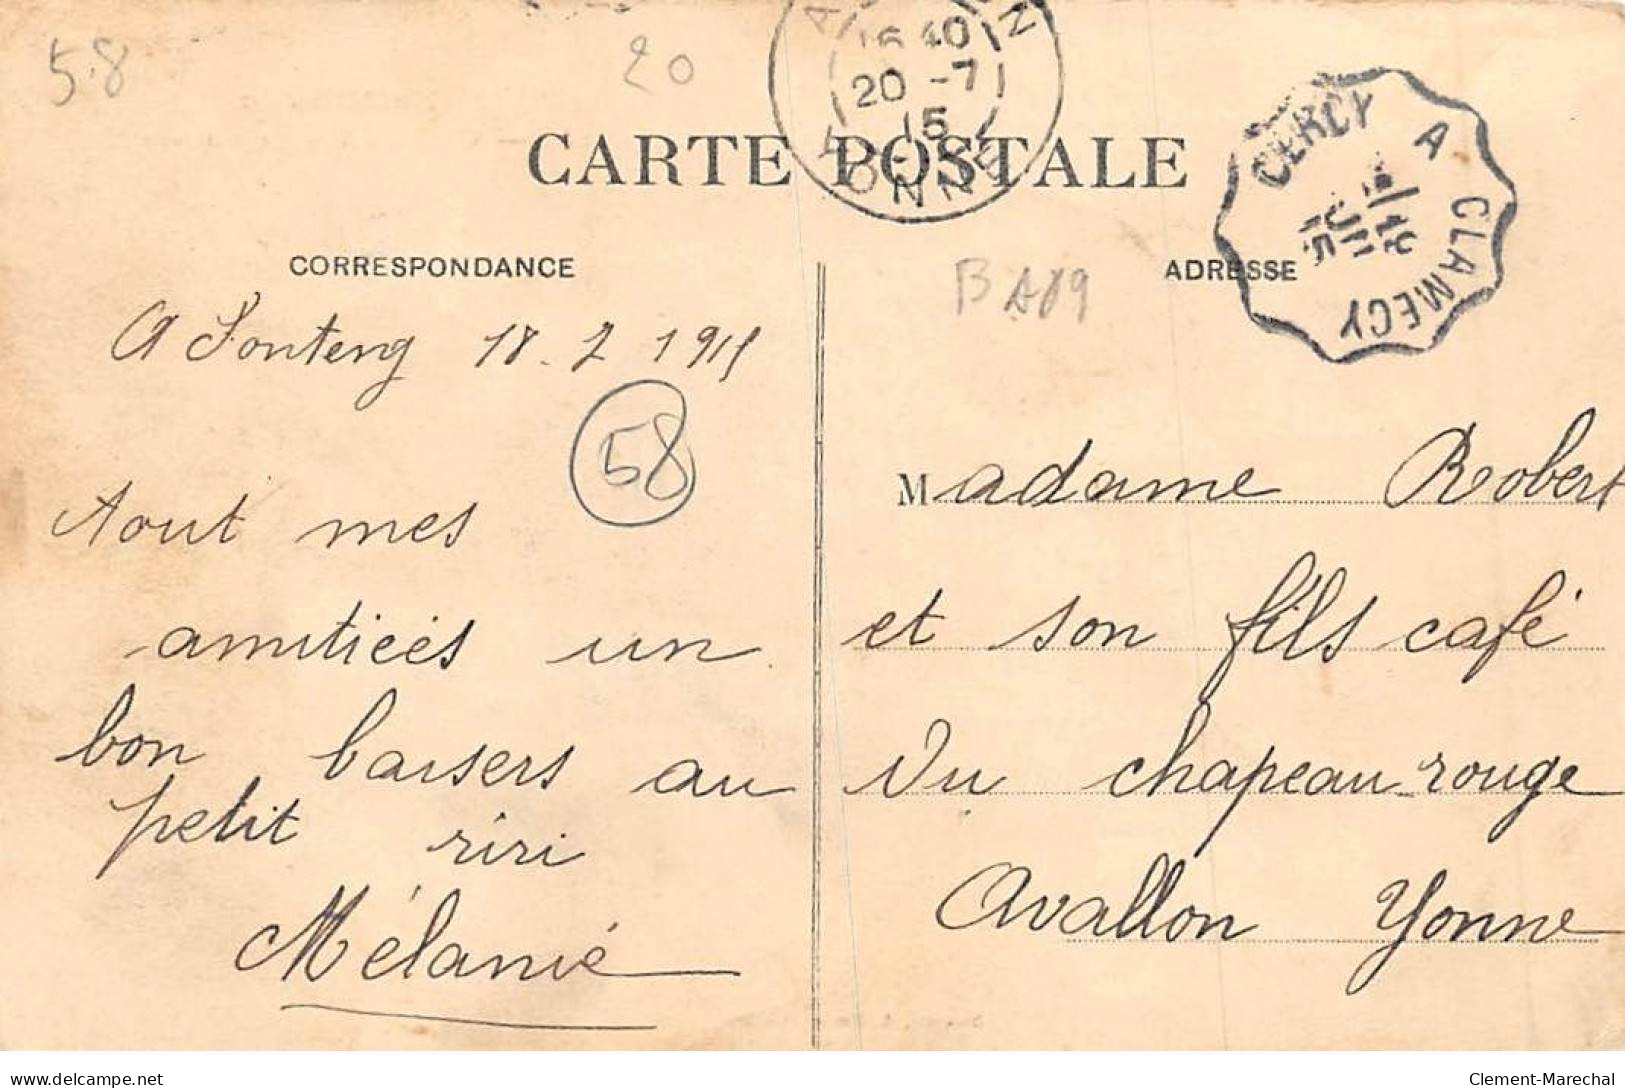 58
20
AVALLON
16 40
20 -7
15
YONNE
CERCY A CLAMECY
19
JUIL
15
CARTE POSTALE
CORRESPONDANCE
ADRESSE
BA89
A 18-7 1915
58
Tout mes
amitiées un
bon baisers au
petit riri
Mélanie
Madame Robert
et son fils café
du chapeau-rouge
Avallon Yonne
delcampe.net
Clement-Marechal